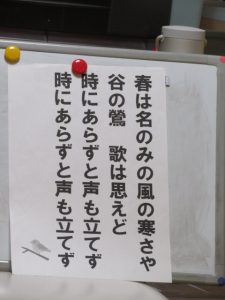 春は名のみの風の寒さや
谷の鶯　歌は思えど
時にあらずと声も立てず
時にあらずと声も立てず